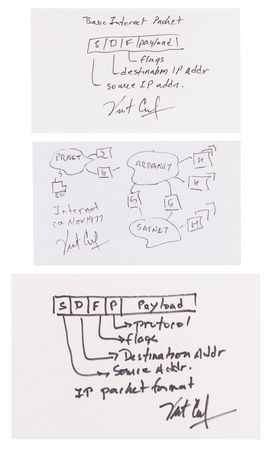 Basic Internet Packet
S D F payload
flags
destination IP Addr
source IP addr.
Vint Cerf
PRNET
G
ARPANET
H
H
H
G
G
SATNET
Internet
ca Nov 1977
Vint Cerf
S D F P Payload
protocol
flags
Destination Addr
Source Addr.
IP packet format
Vint Cerf